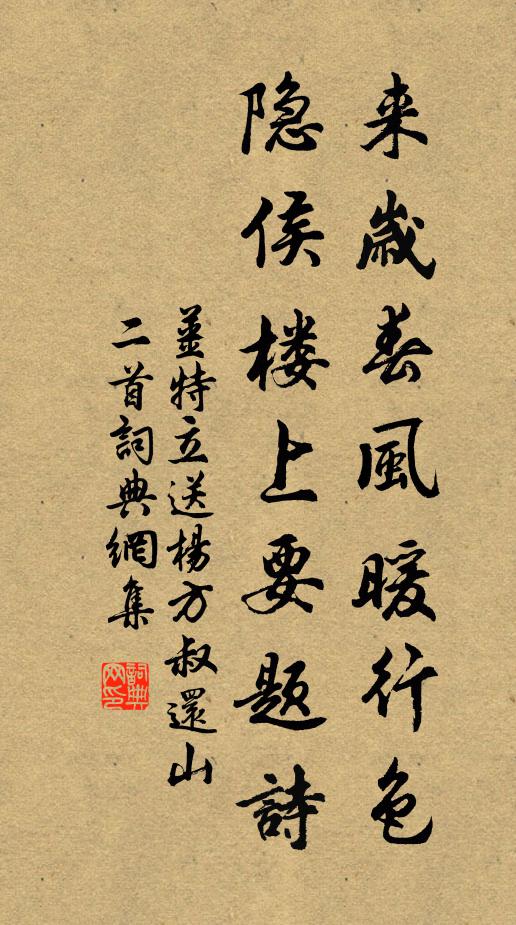 来歳春風暖行色
隐侯楼上要题詩
薑特立送楊方叔還山
二首詞典網集
詞典網印